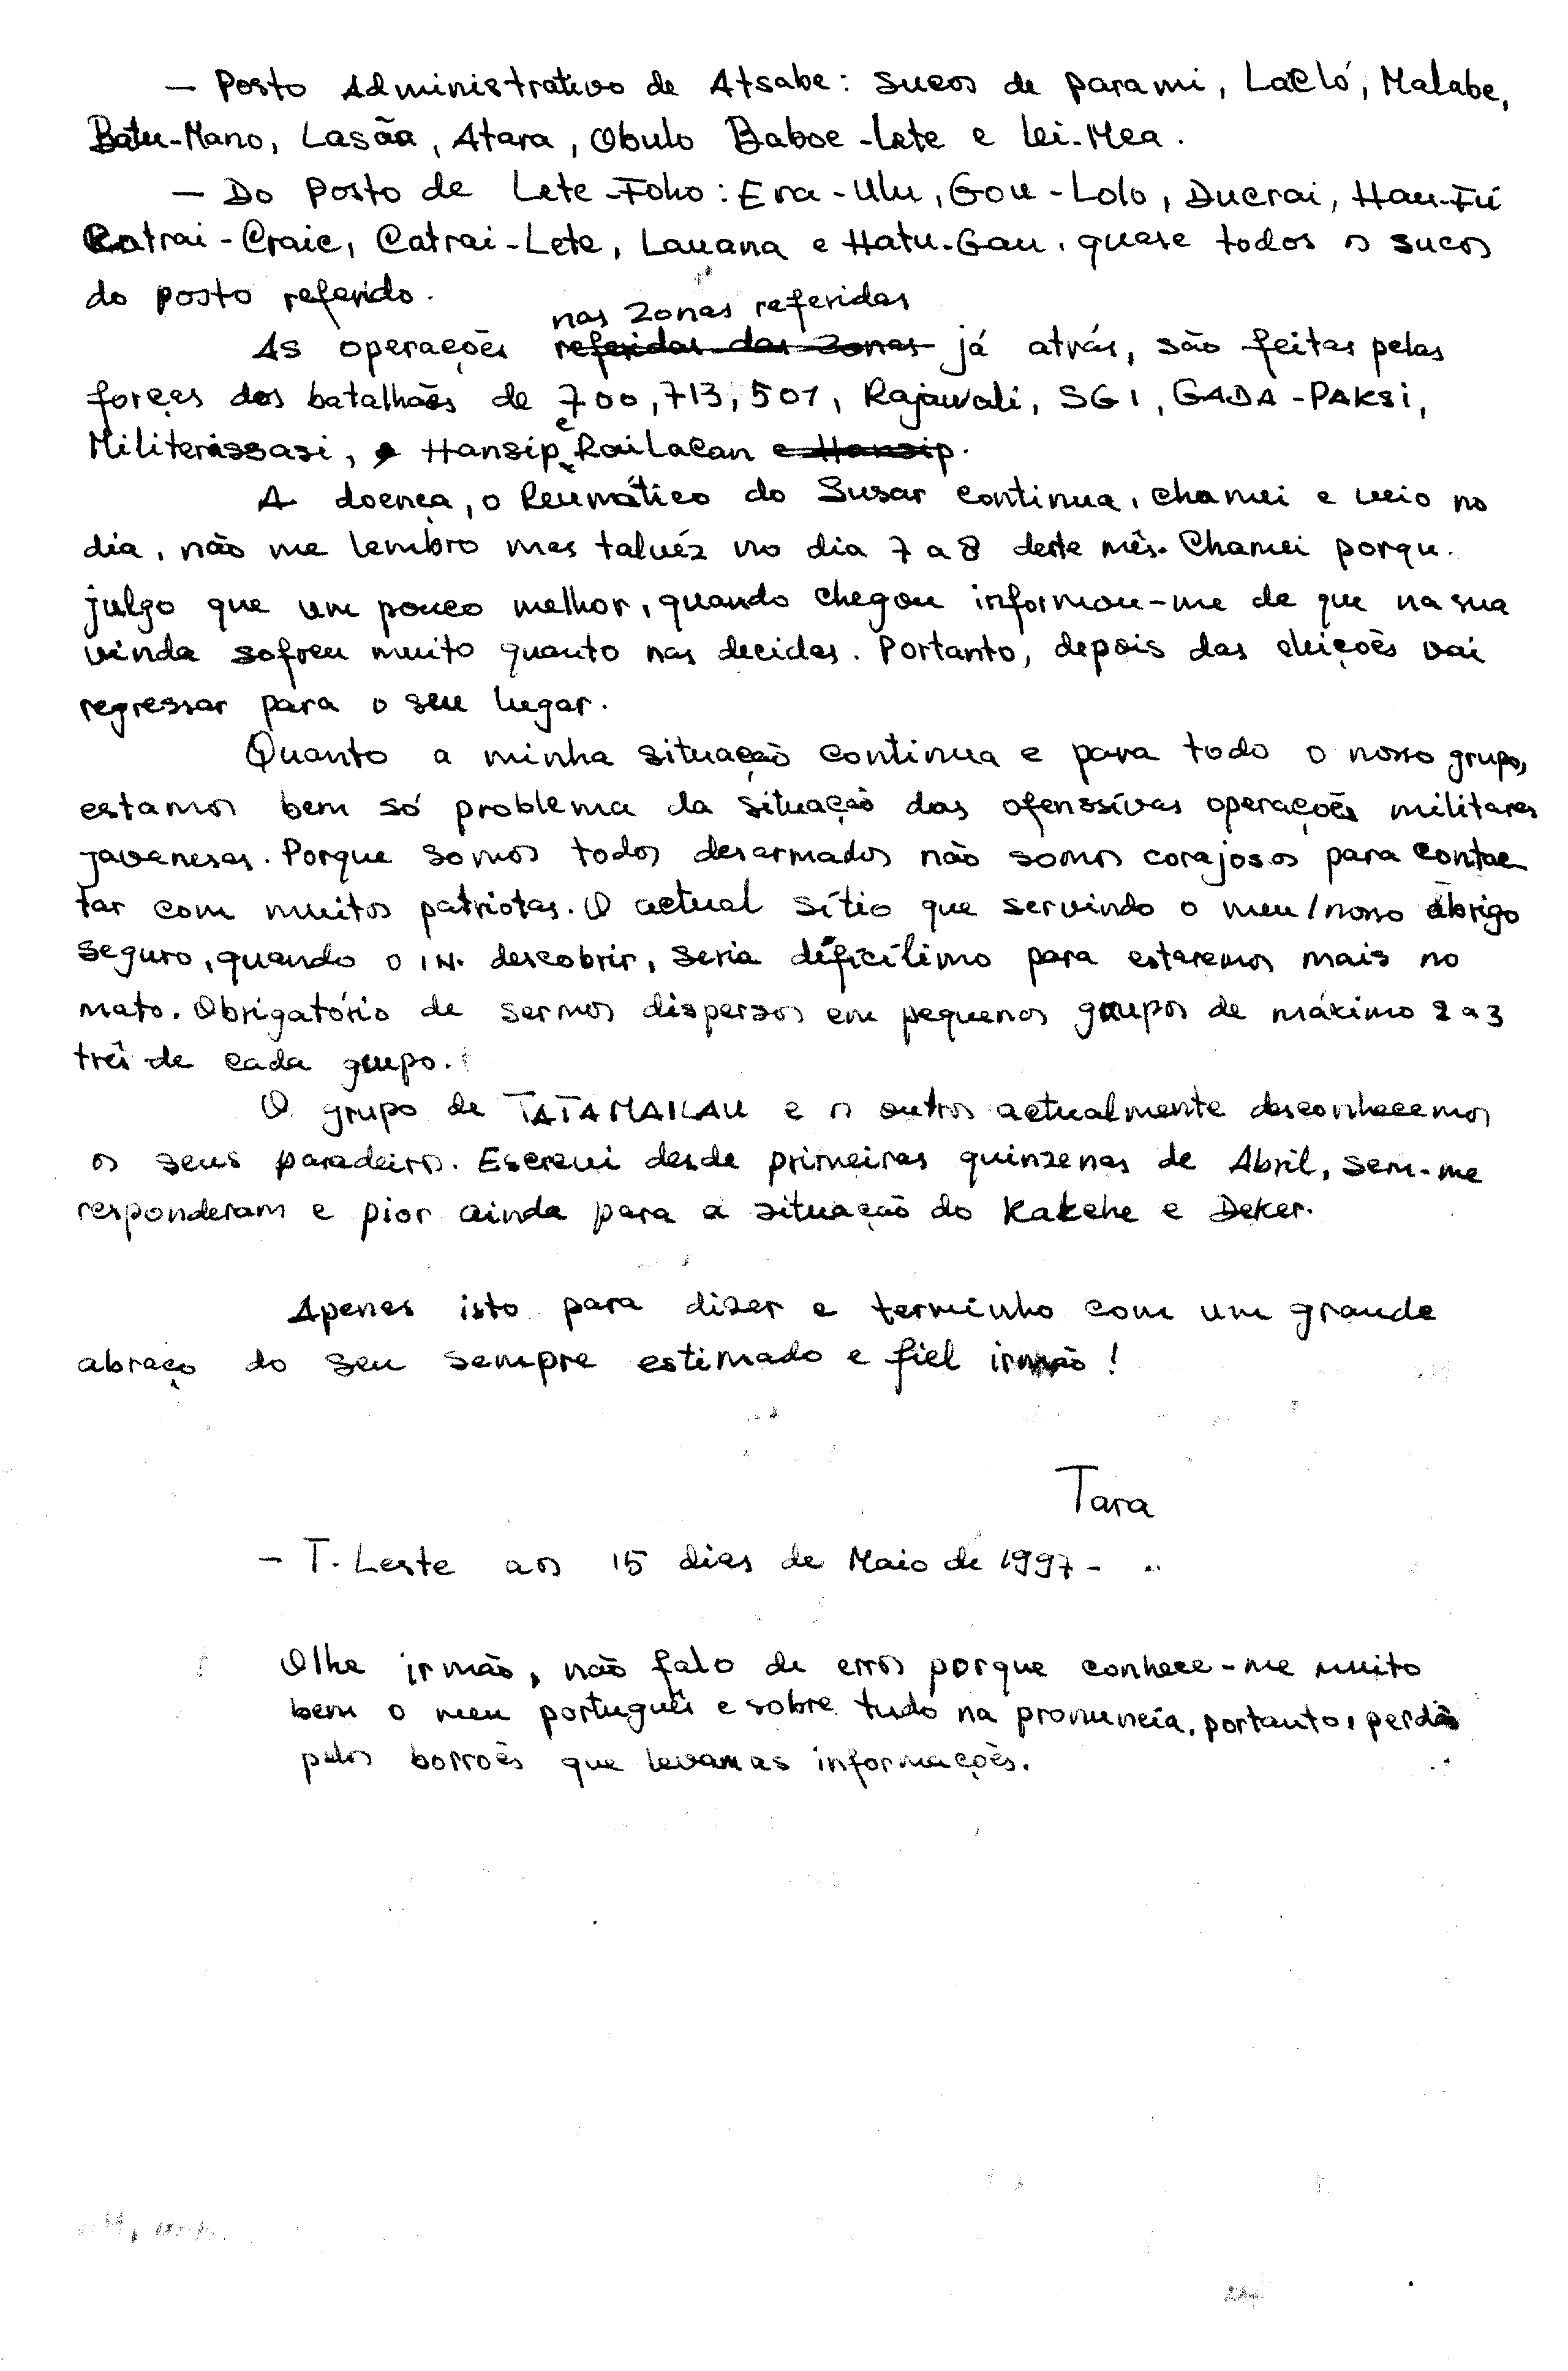 — Posto Administrativo de Atsabe: Sucos de Parami, Lacló, Malabe,
Batu-Mano, Lasãa, Atara, Obulo Baboe-Lete e Lei-Mea.
— Do Posto de Lete-Foho: Era-Ulu, Gou-Lolo, Ducrai, Hau-Fú
Catrai-Craic, Catrai-Lete, Lauana e Hatu-Gau, quase todos os sucos
do posto referido.
nas zonas referidas
As operações referidas das zonas já atrás, são feitas pelas
forças dos batalhões de 700, 713, 501, Rajawali, SGI, GADA-PAKSI,
Militerissasi, Hansip e Railacan e Hansip.
A doença, o Reumático do Susar continua, chamei e veio no
dia, não me lembro mas taluéz no dia 7 a 8 deste mês. Chamei porqu.
julgo que um pouco melhor, quando chegou informou-me de que na sua
vinda sofreu muito quanto nas decidas. Portanto, depois das eleições vai
regressar para o seu lugar.
Quanto a minha situação continua e para todo o nosso grupo,
estamos bem só problema da situação das ofenssívas operações militares
javanesas. Porque somos todos desarmados não somos corajosos para contac
tar com muitos patriotas. O actual sítio que servindo o meu/nosso abrigo
seguro, quando o IN. descobrir, seria dificílimo para estaremos mais no
mato. Obrigatório de sermos dispersos em pequenos grupos de máximo 2 a 3
três de cada grupo.
O grupo de TATAMAILAU e os outros actualmente desconhecemos
os seus paradeiros. Escrevi desde primeiras quinzenas de Abril, sem-me
responderam e pior ainda para a situação do Kakehe e Deker.
Apenas isto para dizer e terminho com um grande
abraço do seu sempre estimado e fiel irmão!
Tara
- T. Leste aos 15 dias de Maio de 1997 -
Olhe irmão, não falo de erros porque conhece-me muito
bem o meu português e sobre tudo na pronuncia, portanto, perdão
pelos borroes que levam as informações.